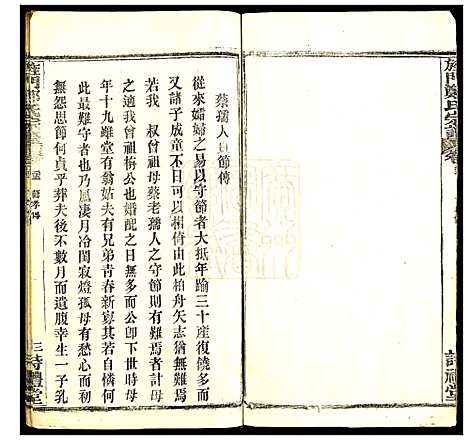 旌門鄭氏宗譜卷
詩禮堂
蔡孺人貞節傳
從來孀婦之易以守節者大抵年踰三十產復饒多而
又諸子成童不以相倚由此柏舟矢志猶無難焉
若我 叔曾祖母蔡老孺人之守節則有難焉者計母
之適我曾祖梅公也婚配之日無多而公卽下世時母
年十九雖堂有翁姑夫有兄弟青春新寡其若自憐何
最難守者也乃風淒月冷閨寂燈孤母有愁心而初
無怨思節何貞乎葬夫後不數月而遺腹幸生一子乳
旌門鄭氏宗譜卷
三
詩禮堂